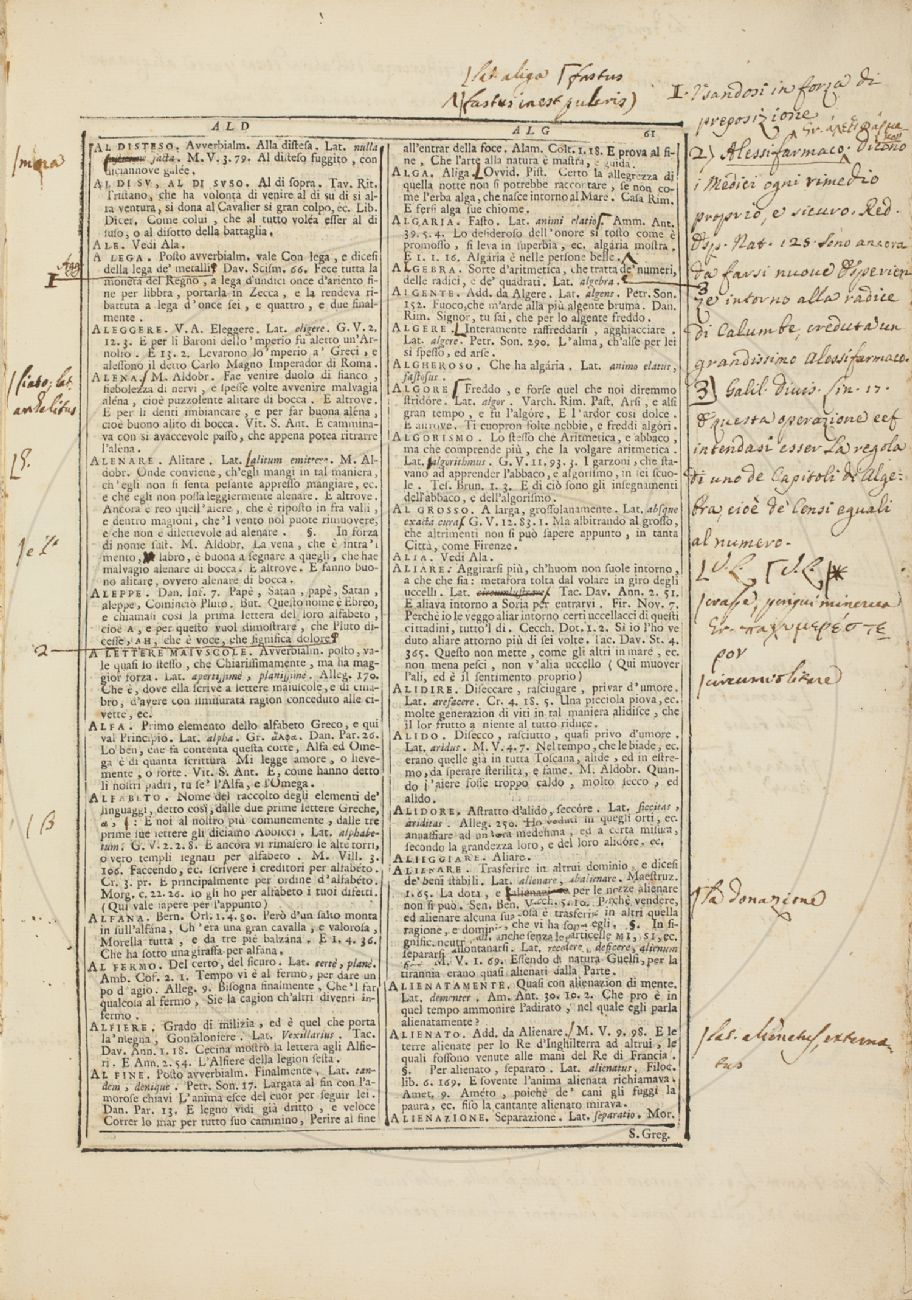 lat. aliga fastus
(fastus inest pulcris)
ALD
ALG 61
AL DISTESO. Avverbialm. Alla distesa. Lat. nulla
jacta. M. V. 3. 79. Al disteso fuggito, con
diciannove galée.
AL DI SU, AL DI SUSO. Al di sopra. Tav. Rit.
Tristano, che ha volontà di venire al di su di si al-
ta ventura, si dona al Cavalier si gran colpo, ec. Lib.
Dicer. Come colui, che al tutto voléa esser al di
suso, o al disotto della battaglia.
ALE. Vedi Ala.
A LEGA. Posto avverbialm. vale Con lega, e dicesi
della lega de' metalli. Dav. Scism. 66. Fece tutta la
moneta del Regno, a lega d'undici once d'ariento fi-
ne per libbra, portarla in Zecca, e la rendeva ri-
battuta a lega d'once sei, e quattro, e due final-
mente.
ALEGGERE. V. A. Eleggere. Lat. eligere. G. V. 2.
12. 3. E per li Baroni dello 'mperio fu aletto un'Ar-
nolfo. E 13. 2. Levarono lo 'mperio a' Greci, e
alessono il detto Carlo Magno Imperador di Roma.
ALENA. M. Aldobr. Fae venire duolo di fianco,
fiebolezza di nervi, e spesse volte avvenire malvagia
aléna, cioè puzzolente alitare di bocca. E altrove.
E per li denti imbiancare, e per far buona aléna,
cioè buono alito di bocca. Vit. S. Ant. E cammina-
va con sì avaccevole passo, che appena potea ritrarre
l'alena.
ALENARE. Alitare. Lat. alitum emittere. M. Al-
dobr. Onde conviene, ch'egli mangi in tal maniera,
ch'egli non si senta pesante appresso mangiare, ec.
e che egli non possa leggiermente alenare. E altrove.
Ancora è reo quell'aiere, che è riposto in fra valli,
e dentro magioni, che 'l vento nol puote rimuovere,
e che non è dilettevole ad alenare. §. In forza
di nome sust. M. Aldobr. La vena, che è intra 'l
mento, labro, è buona a segnare a quegli, che hae
malvagio alenare di bocca. E altrove. E fanno buo-
no alitare, ovvero alenare di bocca.
ALEPPE. Dan. Inf. 7. Papè, Satan, papè, Satan,
aleppe, Cominciò Pluto. But. Questo nome è Ebreo,
e chiamasi così la prima lettera del loro alfabeto,
cioè A, e per questo vuol dimostrare, che Pluto di-
cesse, AH, che è voce, che significa dolore.
A LETTERE MAIUSCOLE. Avverbialm. posto, va-
le quasi lo stesso, che Chiarissimamente, ma ha mag-
gior forza. Lat. apertissimè, planissimè. Alleg. 170.
Che è, dove ella scrive a lettere maiuscole, e di cina-
bro, d'avere con misurata ragion conceduto alle ci-
vette, ec.
ALFA. Primo elemento dello alfabeto Greco, e qui
val Principio. Lat. alpha. Gr. ἄλφα. Dan. Par. 26.
Lo ben, che fa contenta questa corte, Alfa ed Ome-
ga è di quanta scrittura Mi legge amore, o lieve-
mente, o forte. Vit. S. Ant. E, come hanno detto
li nostri padri, tu se' l'Alfa, e l'Omega.
ALFABETO. Nome del raccolto degli elementi de'
linguaggi, detto così, dalle due prime lettere Greche,
E noi al nostro più comunemente, dalle tre
prime sue lettere gli diciamo ABBICCI. Lat. alphabe-
tum. G. V. 2. 2. 8. E ancora vi rimasero le alte torri,
ovvero templi segnati per alfabeto. M. Vill. 3.
106. Faccendo, ec. scrivere i creditori per alfabeto.
Cr. 3. pr. E principalmente per ordine d'alfabeto.
Morg. c. 22. 26. Io gli ho per alfabeto i tuoi difetti.
(Qui vale sapere per l'appunto)
ALFANA. Bern. Orl. 1. 4. 80. Però d'un salto monta
in sull'alfana, Ch'era una gran cavalla, e valorosa,
Morella tutta, e da tre piè balzana. E 1. 4. 36.
Che ha sotto una giraffa per alfana.
AL FERMO. Del certo, del sicuro. Lat. certè, planè.
Amb. Cof. 2. 1. Tempo vi è al fermo, per dare un
po d'agio. Alleg. 9. Bisogna finalmente, Che 'l far
qualcosa al fermo, Sie la cagion ch'altri diventi in-
fermo.
ALFIERE. Grado di milizia, ed è quel che porta
la 'nsegna, Gonfaloniere. Lat. Vexillarius. Tac.
Dav. Ann. 1. 18. Cecina mostrò la lettera agli Alfie-
ri. E Ann. 2. 54. L'Alfiere della legion sesta.
AL FINE. Posto avverbialm. Finalmente. Lat. tan-
dem, denique. Petr. Son. 17. Largata al fin con l'a-
morose chiavi L'anima esce del cuor per seguir lei.
Dan. Par. 13. E legno vidi già dritto, e veloce
Correr lo mar per tutto suo cammino, Perire al fine
all'entrar della foce. Alam. Colt. 1. 18. E prova al fi-
ne, Che l'arte alla natura è mastra, e guida.
ALGA. Aliga. Ovvid. Pist. Certo la allegrezza di
quella notte non si potrebbe raccontare, se non co-
me l'erba alga, che nasce intorno al Mare. Casa Rim.
E fersi alga sue chiome.
ALGARIA. Fasto. Lat. animi elatio. Amm. Ant.
39. 5. 4. Lo desideroso dell'onore sì tosto come è
promosso, si leva in superbia, ec. algaria mostra.
E 1. 1. 16. Algaria è nelle persone belle.
ALGEBRA. Sorte d'aritmetica, che tratta de' numeri,
delle radici, e de' quadrati. Lat. algebra.
ALGENTE. Add. da Algere. Lat. algens. Petr. Son.
152. Fuoco, che m'arde alla più algente bruma. Dan.
Rim. Signor, tu sai, che per lo algente freddo.
ALGERE. Interamente raffreddarsi, agghiacciare.
Lat. algere. Petr. Son. 290. L'alma, ch'alse per lei
sì spesso, ed arse.
ALGHEROSO. Che ha algaria. Lat. animo elatus,
fastosus.
ALGORE. Freddo, e forse quel che noi diremmo
stridóre. Lat. algor. Varch. Rim. Past. Arsi, e alsi
gran tempo, e fu l'algóre, E l'ardor così dolce.
E altrove. Ti cuopron folte nebbie, e freddi algóri.
ALGORISMO. Lo stesso che Aritmetica, e abbaco,
ma che comprende più, che la volgare aritmetica.
Lat. algorithmus. G. V. 11. 93. 3. I garzoni che sta-
vano ad apprender l'abbaco, e algorismo, in sei scuo-
le. Tes. Brun. 1. 3. E di ciò sono gli insegnamenti
dell'abbaco, e dell'algorismo.
AL GROSSO. A larga, grossolanamente. Lat. absque
exacta cura. G. V. 12. 83. 1. Ma albitrando al grosso,
che altrimenti non si può sapere appunto, in tanta
Città, come Firenze.
ALIA. Vedi Ala.
ALIARE. Aggirarsi più, ch'huom non suole intorno,
a che che sia: metafora tolta dal volare in giro degli
uccelli. Lat. circumlustrare. Tac. Dav. Ann. 2. 51.
E aliava intorno a Soria per entrarvi. Fir. Nov. 7.
Perchè io le veggo aliar intorno certi uccellacci di questi
cittadini, tutto 'l dì. Cecch. Dot. 1. 2. Sì io l'ho ve
duto aliare attorno più di sei volte. Tac. Dav. St. 4.
365. Questo non mette, come gli altri in mare, ec.
non mena pesci, non v'alia uccello (Qui muover
l'ali, ed è il sentimento proprio)
ALIDIRE. Diseccare, rasciugare, privar d'umore.
Lat. arefacere. Cr. 4. 18. 5. Una picciola piova, ec.
molte generazion di viti in tal maniera alidisce, che
il lor frutto a niente al tutto riduce.
ALIDO. Disecco, rasciutto, quasi privo d'umore.
Lat. aridus. M. V. 4. 7. Nel tempo, che le biade, ec.
erano quelle già in tutta Toscana, alide, ed in estre-
mo, da sperare sterilità, e fame. M. Aldobr. Quan-
do l'aiere fosse troppo caldo, molto secco, ed
alido.
ALIDORE. Astratto d'alido, seccóre. Lat. siccitas,
ariditas. Alleg. 250. Ho veduti in quegli orti, ec.
annaffiare ad un'ora medesima, ed a certa misura,
secondo la grandezza loro, e del loro alidóre, ec.
ALIEGGIARE. Aliare.
ALIENARE. Trasferire in altrui dominio, e dicesi
de' beni stabili. Lat. alienare, abalienare. Maestruz.
1. 65. La dota, e per le nozze alienare
non si può. Sen. Ben. Varch. 5. 10. Perchè vendere,
ed alienare alcuna sua cosa è trasferire in altri quella
ragione, e dominio, che vi ha sopra egli. §. In si-
gnific. neutr. pass. anche senza le particelle MI, SI, ec.
separarsi allontanarsi. Lat. recedere, deficere, alienum
M. V. 1. 69. Essendo di natura Guelfi, per la
tirannia erano quasi alienati dalla Parte.
ALIENATAMENTE. Quasi con alienazion di mente.
Lat. dementer. Am. Ant. 30. 10. 2. Che prò è in
quel tempo ammonire l'adirato, nel quale egli parla
alienatamente?
ALIENATO. Add. da Alienare. M. V. 9. 98. E le
terre alienate per lo Re d'Inghilterra ad altrui, le
quali fossono venute alle mani del Re di Francia.
§. Per alienato, separato. Lat. alienatus. Filoc.
lib. 6. 169. E sovente l'anima alienata richiamava.
Amet. 9. Améto, poichè de' cani gli fuggì la
paura, ec. fiso la cantante alienato mirava.
ALIENAZIONE. Separazione. Lat. separatio. Mor.
S. Greg.
fiato: lat.
anhelitus
§.
e 'l
2
β
1. Usandosi in forza di
preposizione
2) Alessifarmaco. Dicono
i Medici ogni rimedio
proprio, e sicuro. Red.
Esp. Nat. 125. Sono ancora
da farsi nuove Esperien
ze intorno alla radice
di Calumbe, creduta un
grandissimo Alessifarmaco.
3) Galil. divis. fin. 17.
E questa operazione
intendasi esser la regola
di uno de Capitoli de Alge-
bra, cioè de Censi eguali
al numero.
crasse, pingui minerva
Gr. παχυμερέστε
ρον
circumvolitare
la donazione
lat. alienatus externa-
tus